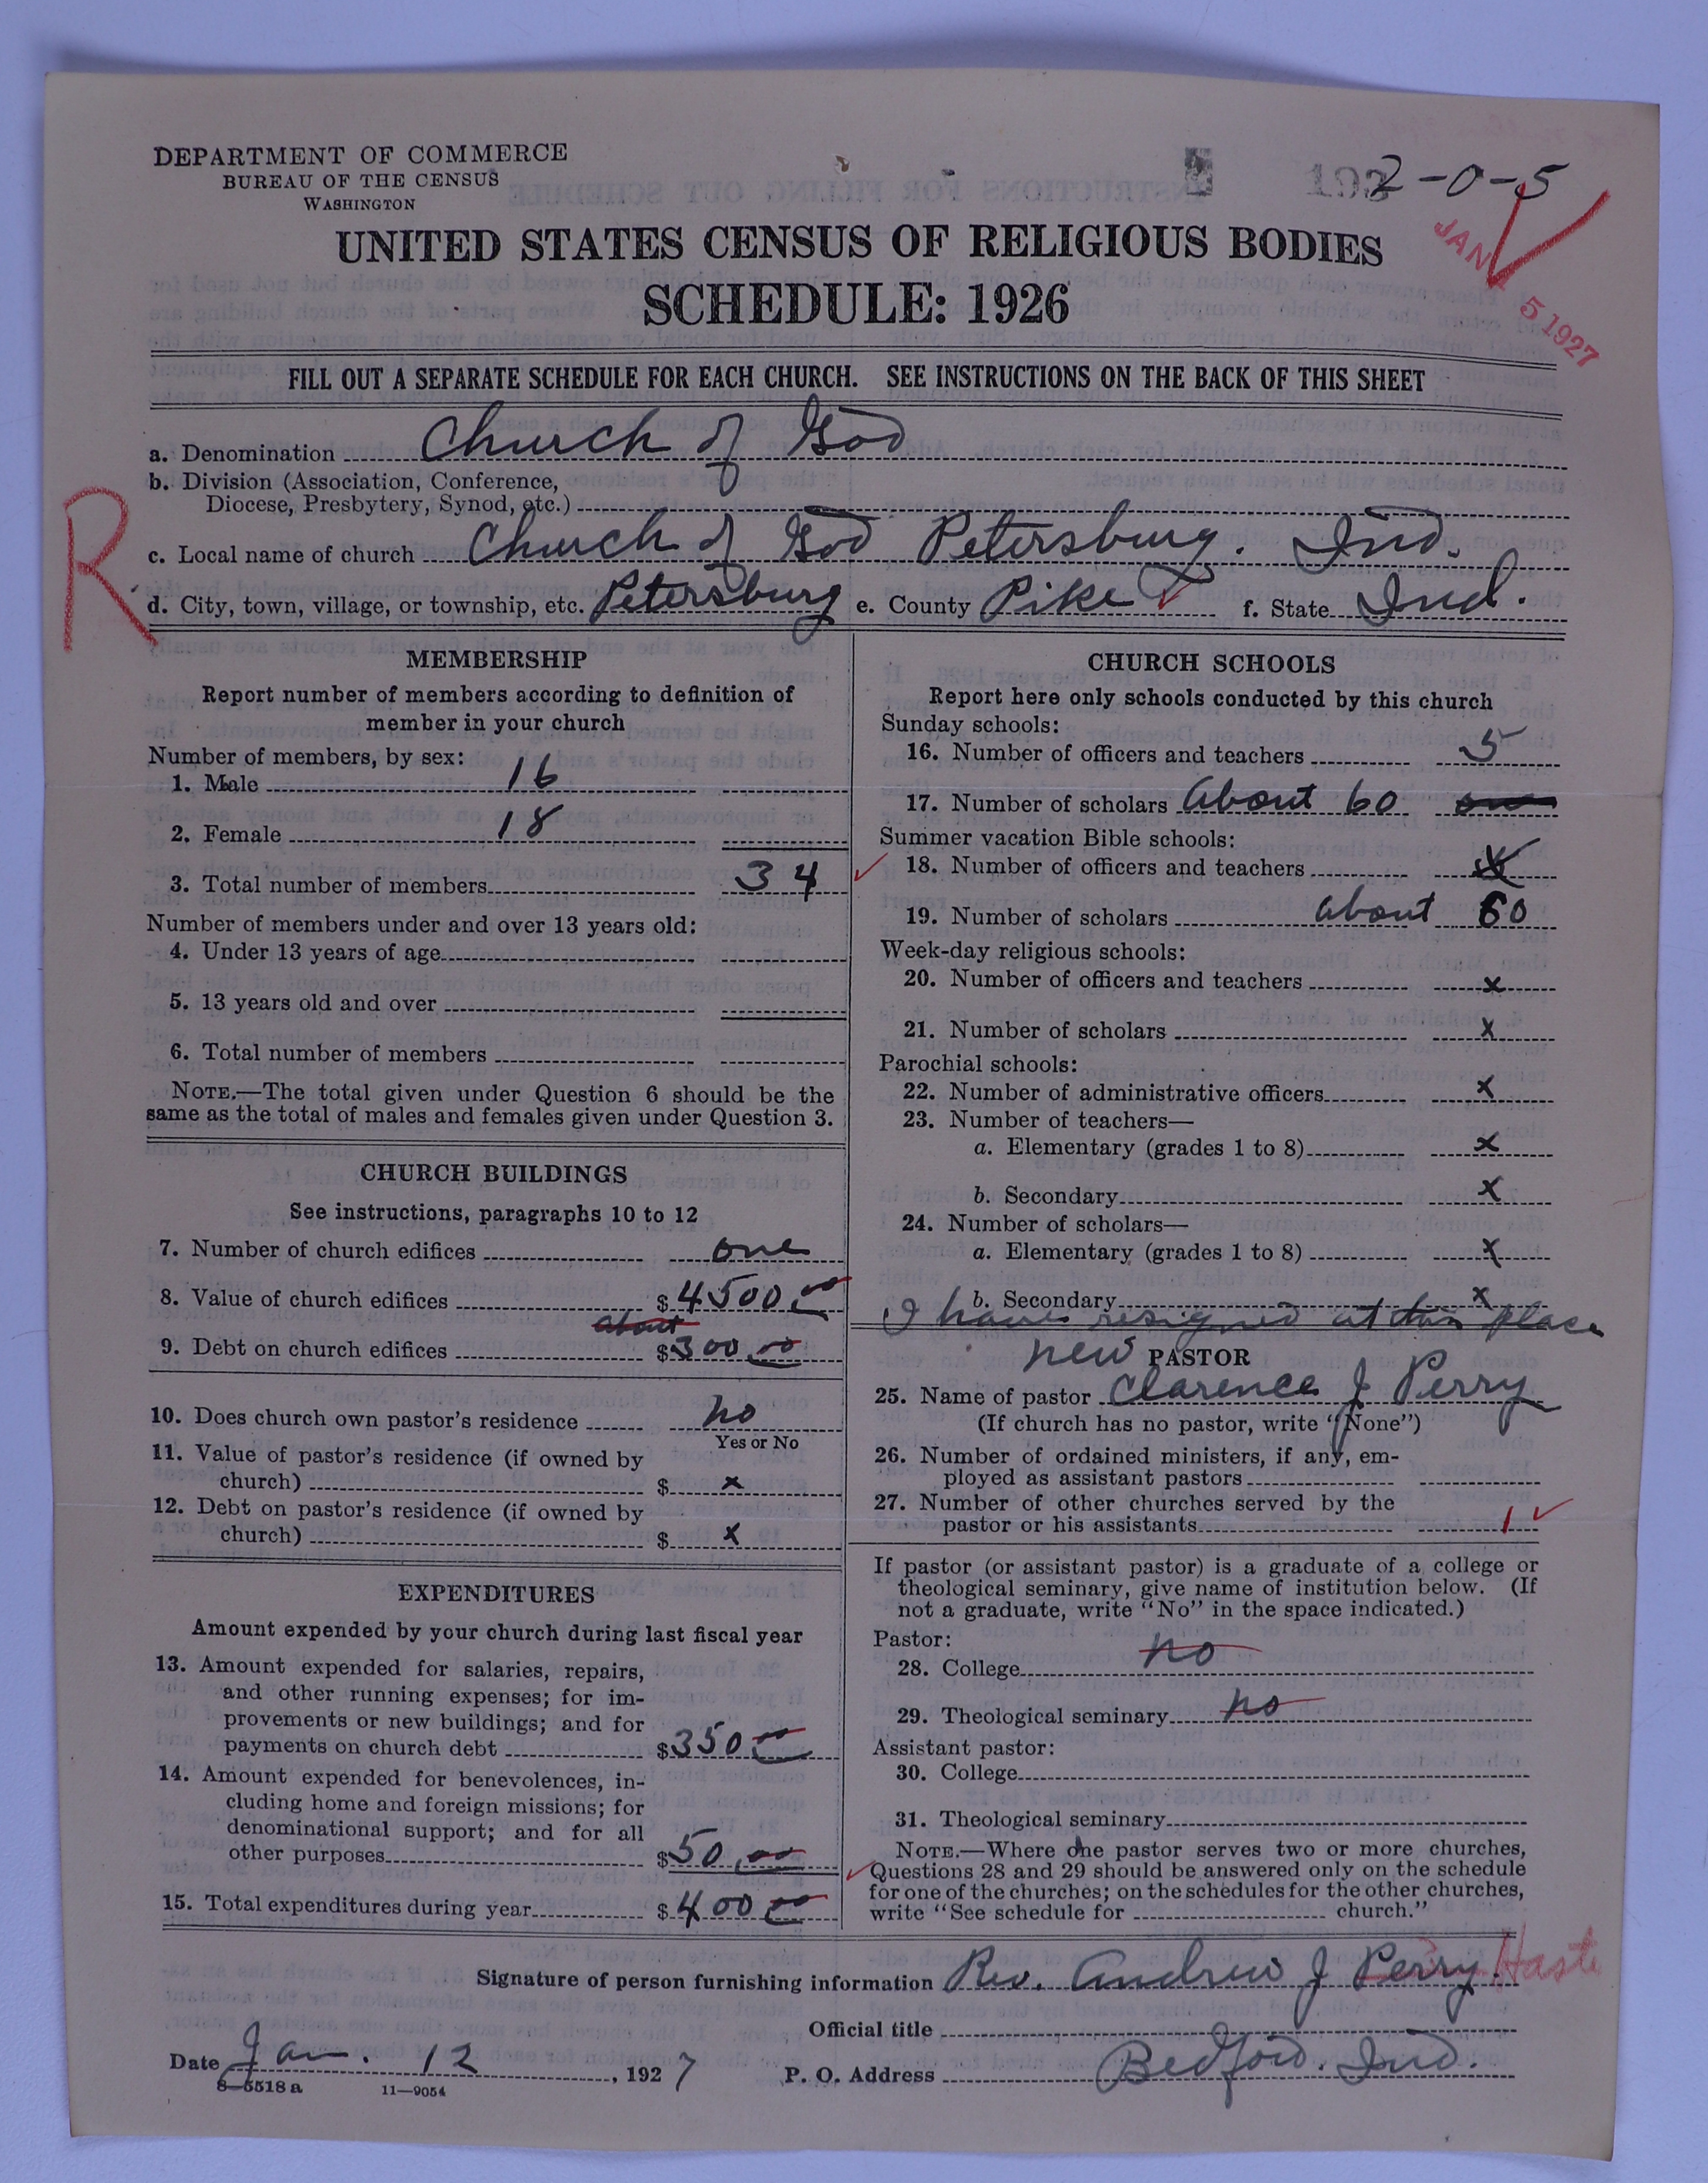 DEPARTMENT OF COMMERCE
BUREAU OF THE CENSUS
WASHINGTON
2-0-5
UNITED STATES CENSUS OF RELIGIOUS BODIES
SCHEDULE: 1926
JAN 5 1927
FILL OUT A SEPARATE SCHEDULE FOR EACH CHURCH. SEE INSTRUCTIONS ON THE BACK OF THIS SHEET
a. Denomination Church of God
b. Division (Association, Conference,
Diocese, Presbytery, Synod, etc.)
R
c. Local name of church Church of God Petersburg. Ind.
d. City, town, village, or township, etc. Petersburg e. County Pike f. State Ind.
MEMBERSHIP
Report number of members according to definition of
member in your church
Number of members, by sex:
1. Male 16
2. Female 18
3. Total number of members 34
Number of members under and over 13 years old:
4. Under 13 years of age
5. 13 years old and over
6. Total number of members
NOTE.—The total given under Question 6 should be the
same as the total of males and females given under Question 3.
CHURCH BUILDINGS
See instructions, paragraphs 10 to 12
7. Number of church edifices one
8. Value of church edifices $4500 00
about
9. Debt on church edifices $300.00
10. Does church own pastor's residence no
Yes or No
11. Value of pastor's residence (if owned by
church) $ x
12. Debt on pastor's residence (if owned by
church) $ x
EXPENDITURES
Amount expended by your church during last fiscal year
13. Amount expended for salaries, repairs,
and other running expenses; for im-
provements or new buildings; and for
payments on church debt $350 00
14. Amount expended for benevolences, in-
cluding home and foreign missions; for
denominational support; and for all
other purposes $50.00
15. Total expenditures during year $400 00
CHURCH SCHOOLS
Report here only schools conducted by this church
Sunday schools:
16. Number of officers and teachers 5
17. Number of scholars About 60
Summer vacation Bible schools:
18. Number of officers and teachers x
19. Number of scholars about 60
Week-day religious schools:
20. Number of officers and teachers x
21. Number of scholars x
Parochial schools:
22. Number of administrative officers x
23. Number of teachers—
a. Elementary (grades 1 to 8) x
b. Secondary x
24. Number of scholars—
a. Elementary (grades 1 to 8) x
b. Secondary x
I have resigned at this place
new PASTOR
25. Name of pastor Clarence J Perry
(If church has no pastor, write "None")
26. Number of ordained ministers, if any, em-
ployed as assistant pastors
27. Number of other churches served by the
pastor or his assistants 1
If pastor (or assistant pastor) is a graduate of a college or
theological seminary, give name of institution below. (If
not a graduate, write "No" in the space indicated.)
Pastor:
28. College no
29. Theological seminary no
Assistant pastor:
30. College
31. Theological seminary
NOTE.—Where one pastor serves two or more churches,
Questions 28 and 29 should be answered only on the schedule
for one of the churches; on the schedules for the other churches,
write "See schedule for church."
Signature of person furnishing information Rev. Andrew J Perry.
Official title
Date Jan. 12, 1927 P. O. Address Bedford. Ind.
8—5518 a 11—9054